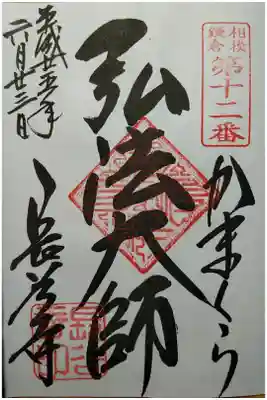 相模
鎌倉
第十二番
かまくら
弘法大師
長谷寺
平成廿五年
六月廿三日